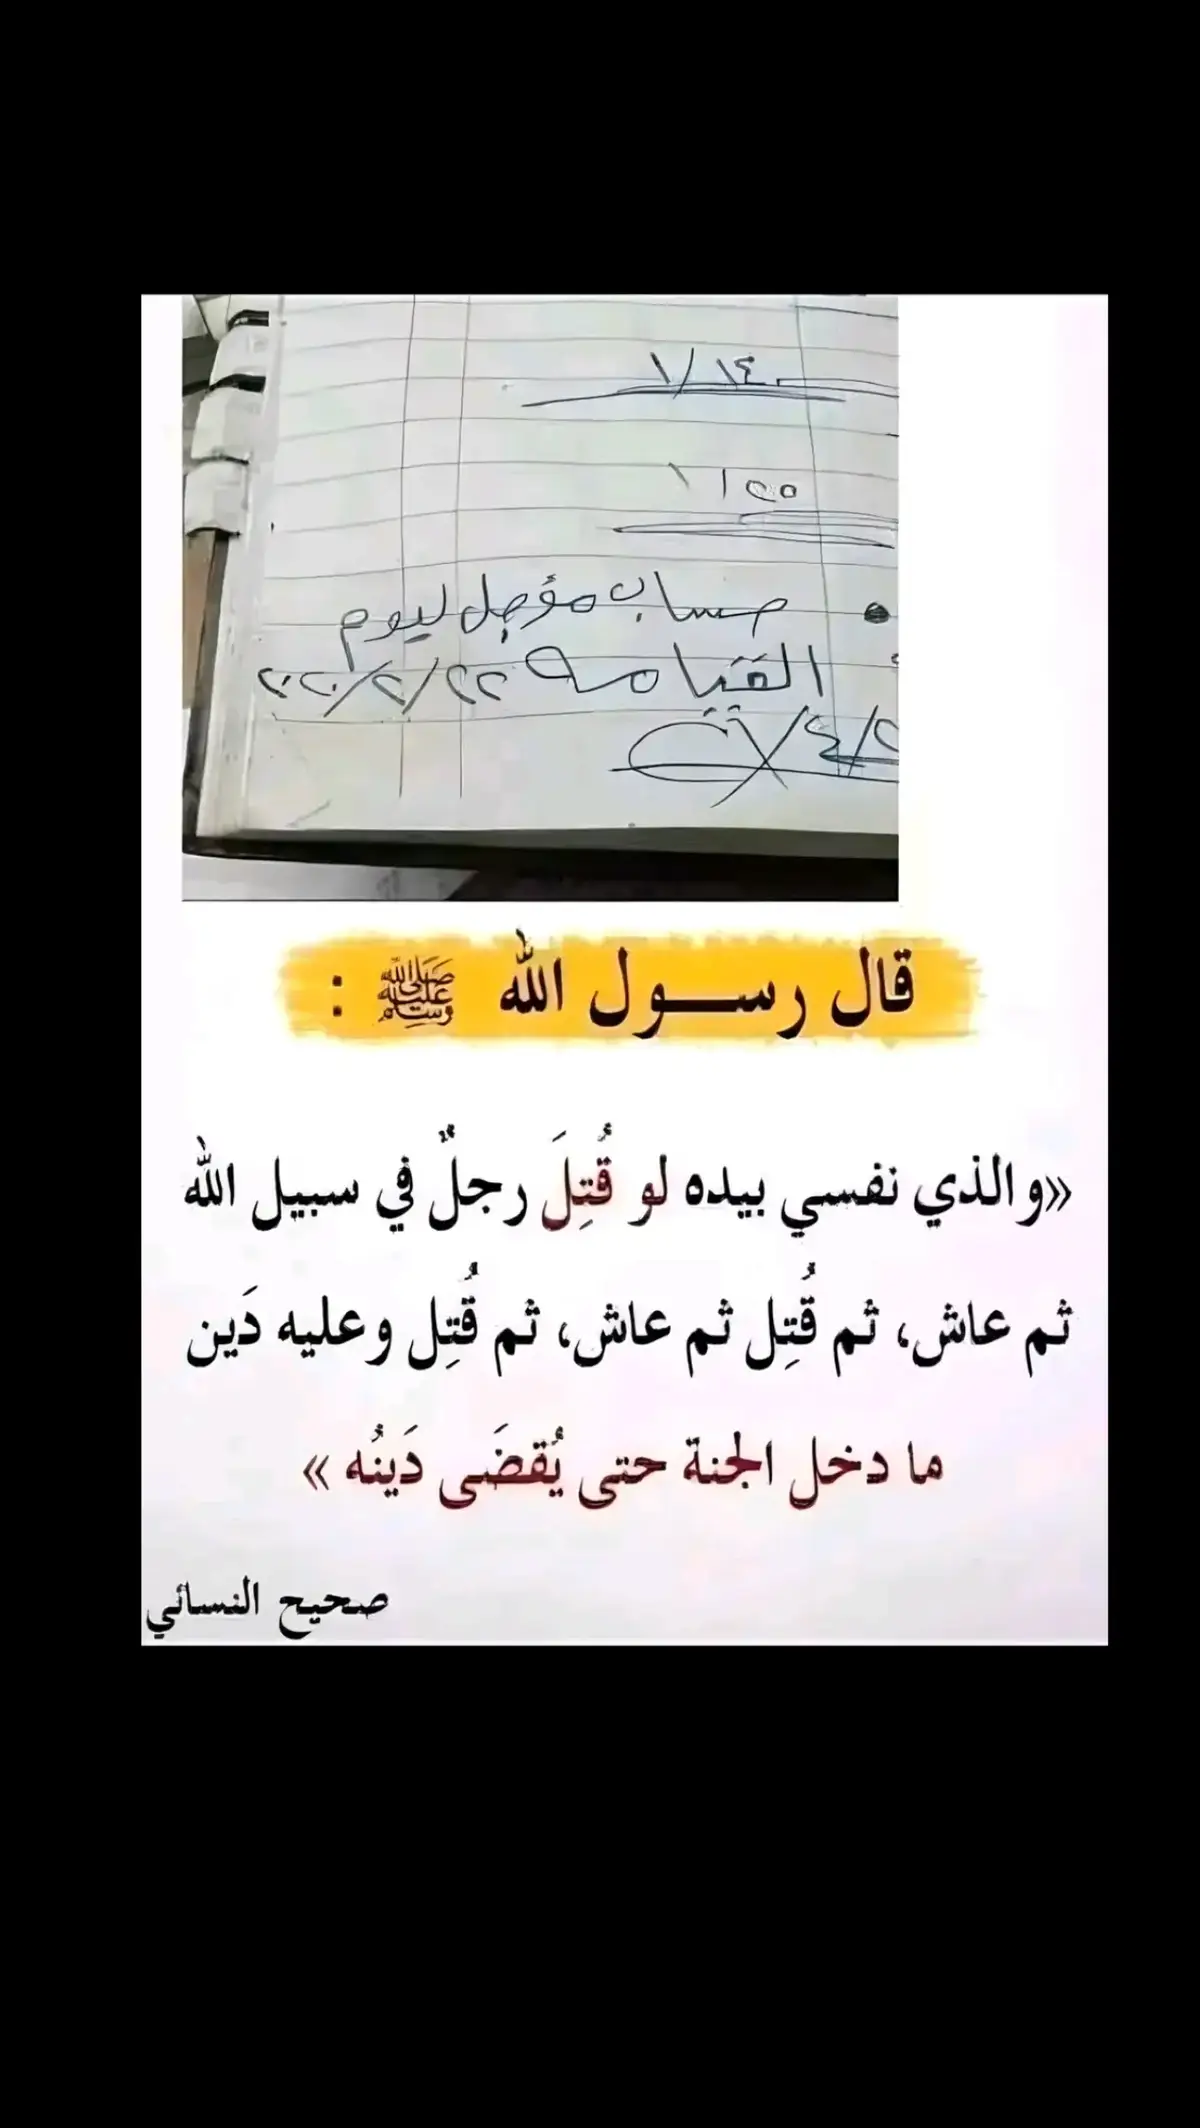 ١/١٤
١/٢٥
حساب مؤجل ليوم
القيامه ٢٢/٢/٢٠٢٠
قال رسول الله ﷺ :
«والذي نفسي بيده لو قُتِلَ رجلٌ في سبيل الله
ثم عاش، ثم قُتِل ثم عاش، ثم قُتِل وعليه دَين
ما دخل الجنة حتى يُقضَى دَينُه »
صحيح النسائي